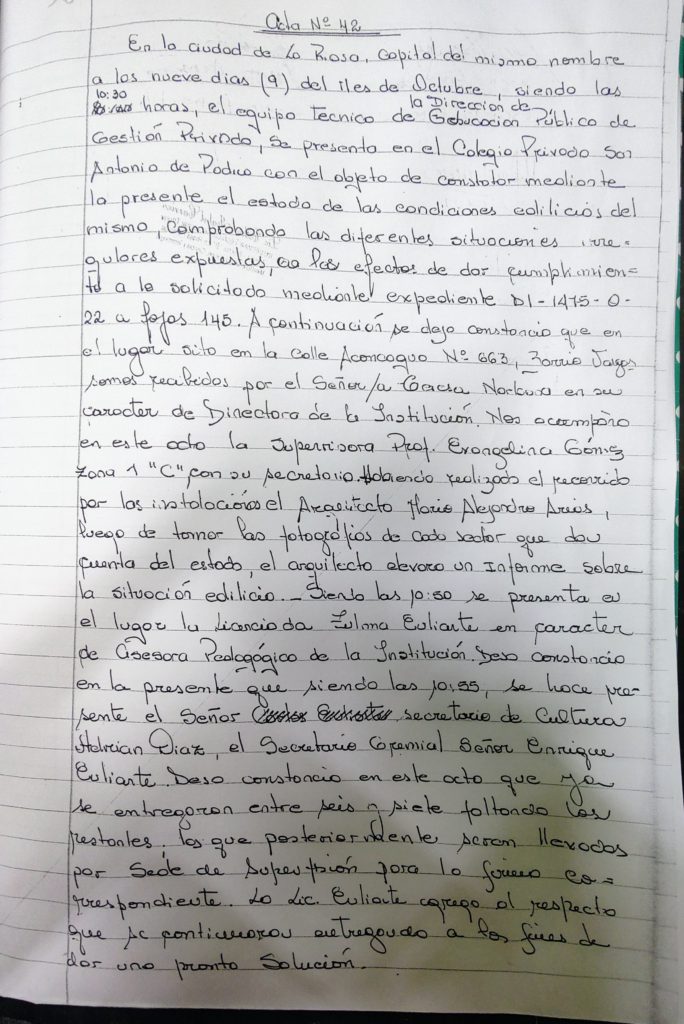 Acta Nº 42
En la ciudad de La Rioja, Capital del mismo nombre
a los nueve dias (9) del Mes de Octubre, siendo las
10:30 la Dirección de
horas, el equipo Tecnico de Educacion Público de
Gestión Privada, se presenta en el Colegio Privado San
Antonio de Padua con el objeto de constatar mediante
la presente el estado de las condiciones edilicias del
mismo, comprobando las diferentes situaciones irre-
gulares expuestas, a los efectos de dar cumplimien-
to a lo solicitado mediante expediente D1-1475-0-
22 a fojas 145. A continuación se deja constancia que en
el lugar sito en la Calle Aconcagua Nº 663, Barrio Vargas
somos recibidos por el Señor/a en su
caracter de Directora de la Institución. Nos acompaña
en este acto la Supervisora Prof. Evangelina Gómez
Zona 1 "C" con su secretaria. Habiendo realizado el recorrido
por las instalaciones el Arquitecto Mario Alejandro Arias,
luego de tomar las fotografías de cada sector que dan
cuenta del estado, el arquitecto elevara un Informe sobre
la situación edilicia._ Siendo las 10:50 se presenta en
el lugar la Licenciada Zulma Euliarte en caracter
de Asesora Pedagógica de la Institución. Dejo constancia
en la presente que siendo las 10:55, se hace pre-
sente el Señor secretario de Cultura
Adrian Diaz, el Secretario Gremial Señor Enrique
Euliarte. Dejo constancia en este acto que ya
se entregaron entre seis y siete faltando los
restantes, los que posteriormente seran llevados
por Sede de Supervisión para la firma co-
rrespondiente. La Lic. Euliarte agrego al respecto
que se continuaran entregando a los fines de
dar una pronta Solución.